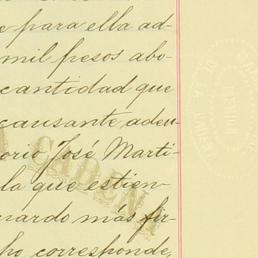 para ella ad-
mil pesos abo-
cantidad que
causante adeu-
orio José Marti-
la que estien-
uardo más fir-
ho corresponde,
CADENA